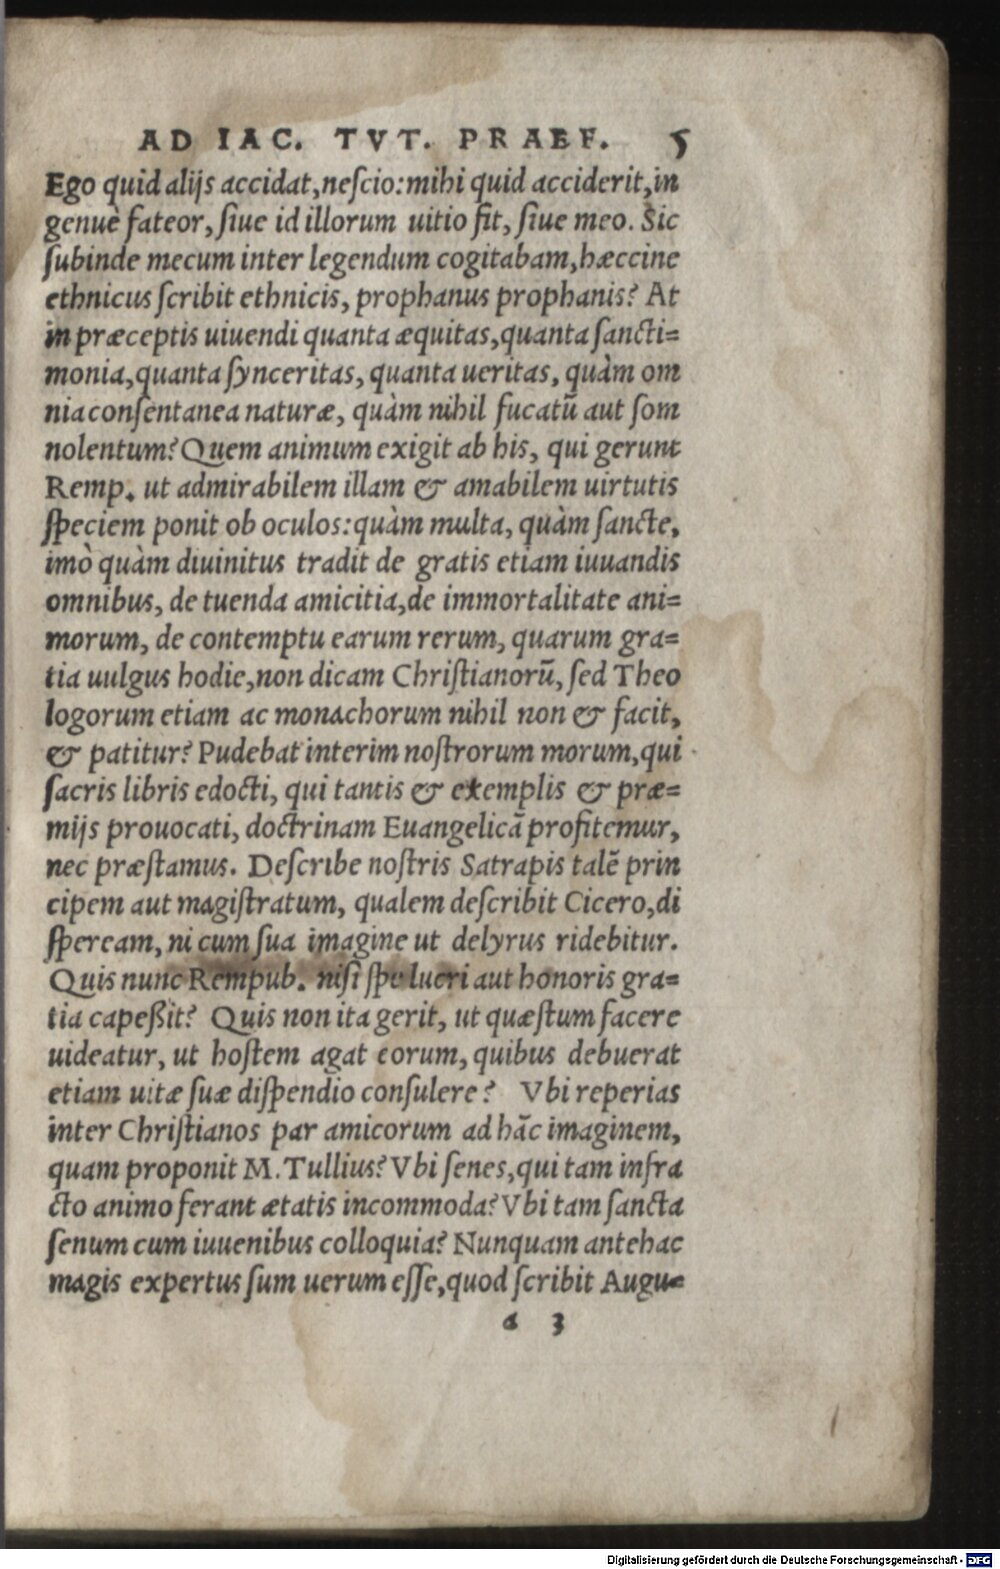 AD IAC. TVT. PRAEF. 5
Ego quid alijs accidat, nescio: mihi quid acciderit, in
genuè fateor, siue id illorum uitio fit, siue meo. Sic
subinde mecum inter legendum cogitabam, hæccine
ethnicus scribit ethnicis, prophanus prophanis? At
in præceptis uiuendi quanta æquitas, quanta sancti=
monia, quanta synceritas, quanta ueritas, quàm om
nia consentanea naturæ, quàm nihil fucatū aut som
nolentum? Quem animum exigit ab his, qui gerunt
Remp. ut admirabilem illam & amabilem uirtutis
speciem ponit ob oculos: quàm multa, quàm sancte,
imò quàm diuinitus tradit de gratis etiam iuuandis
omnibus, de tuenda amicitia, de immortalitate ani=
morum, de contemptu earum rerum, quarum gra=
tia uulgus hodie, non dicam Christianorū, sed Theo
logorum etiam ac monachorum nihil non & facit,
& patitur? Pudebat interim nostrorum morum, qui
sacris libris edocti, qui tantis & exemplis & præ=
mijs prouocati, doctrinam Euangelicā profitemur,
nec præstamus. Describe nostris Satrapis talē prin
cipem aut magistratum, qualem describit Cicero, di
speream, ni cum sua imagine ut delyrus ridebitur.
Quis nunc Rempub. nisi spe lucri aut honoris gra=
tia capeßit? Quis non ita gerit, ut quæstum facere
uideatur, ut hostem agat eorum, quibus debuerat
etiam uitæ suæ dispendio consulere? Vbi reperias
inter Christianos par amicorum ad hāc imaginem,
quam proponit M. Tullius? Vbi senes, qui tam infra
cto animo ferant ætatis incommoda? Vbi tam sancta
senum cum iuuenibus colloquia? Nunquam antehac
magis expertus sum uerum esse, quod scribit Augu=
a 3
Digitalisierung gefördert durch die Deutsche Forschungsgemeinschaft - DFG